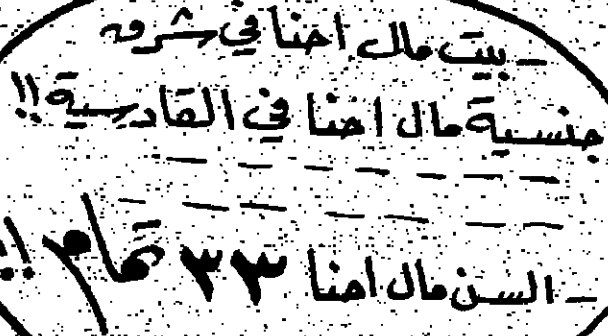 - بيت مال احنا في شرق
جنسية مال احنا في القادسية !!
- السن مال احنا ٣٣ تمام !!